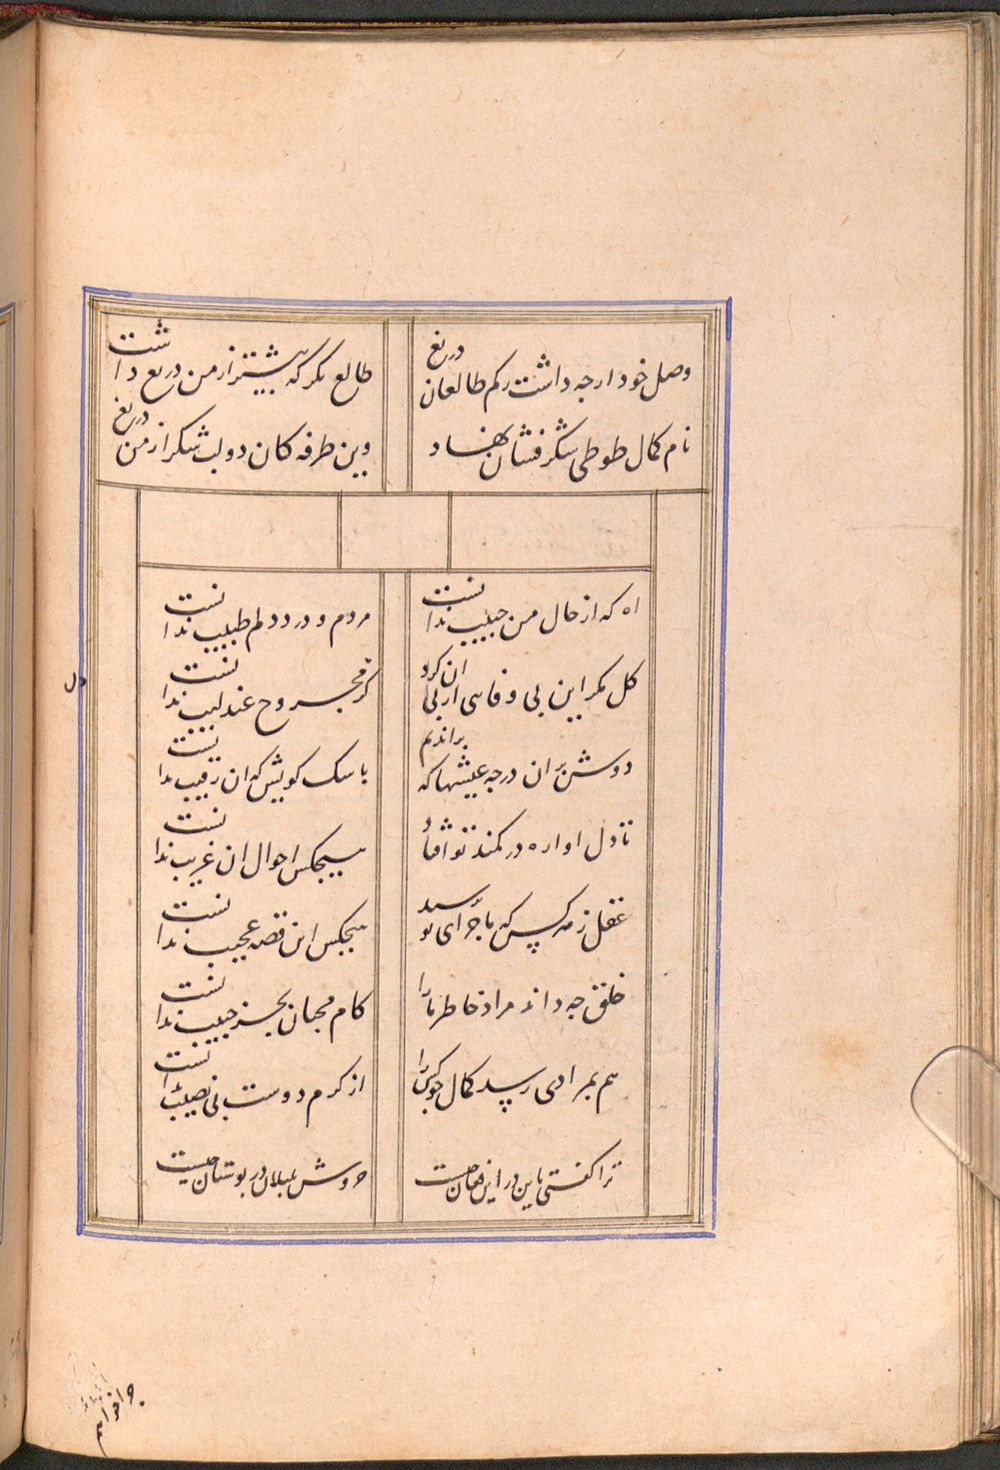 وصل خود ارچه داشت ز کم طالعان دریغ
طالع نکر که بیشتر از من دریغ داشت
نام کمال طوطی شکر فشان نهاد
وین طرفه کان دو لب شکر از من دریغ
اه که از حال من حبیب ندانست
مردم و درد دلم طبیب ندانست
کل مکر این بی وفایی از پی ان کرد
مجروح عندلیب ندانست
دوش بران در چه عیشها که براندیم
با سک کویش که ان رقیب ندانست
تا دل اواره در کمند تو افتاد
هیچکس احوال ان غریب ندانست
عقل ز هر کس که ماجرای تو پرسید
هیچکس این قصه عجیب ندانست
خلق چه داند مراد خاطر ما را
کام محبان بجز حبیب ندانست
هم بمرادی رسد کمال چو کس را
از کرم دوست بی نصیب ندانست
ترا کفتی باین در این فغان چیست
خروش بلبلان در بوستان چیست